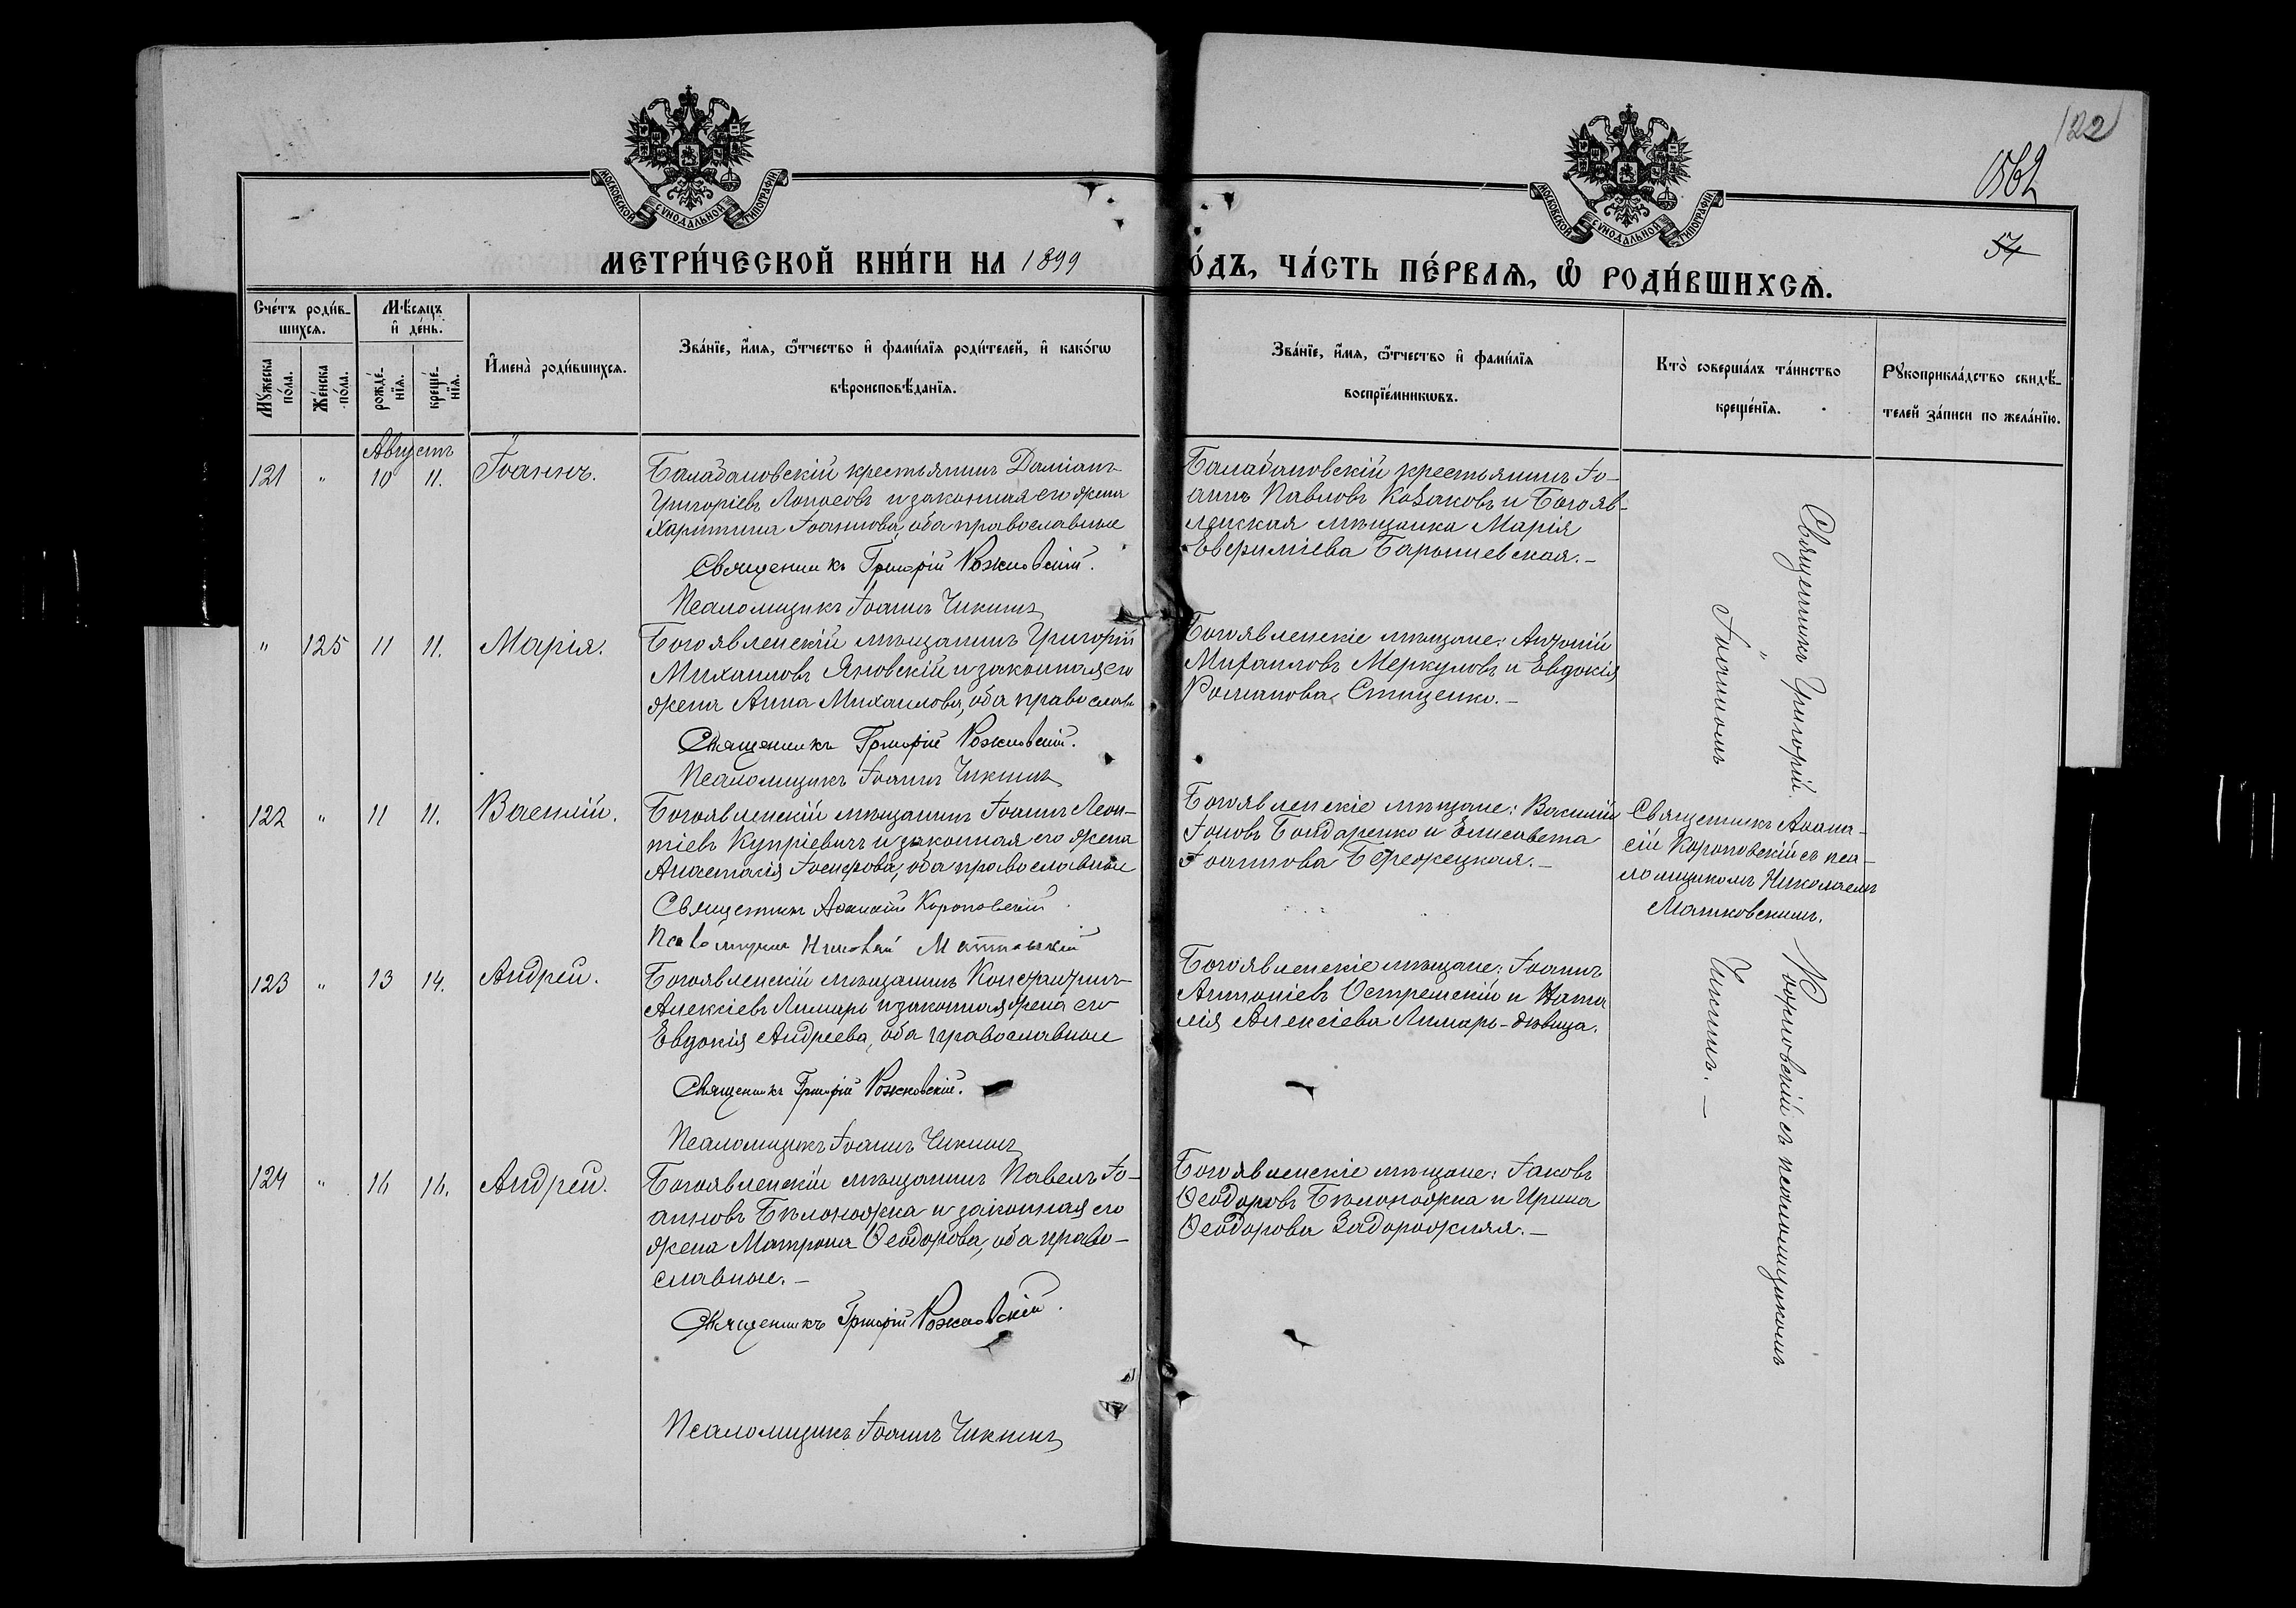 122
1562
54
МОСКОВСКОЙ СѴНОДАЛЬНОЙ ТИПОГРАФІИ
МОСКОВСКОЙ СѴНОДАЛЬНОЙ ТИПОГРАФІИ
МЕТРИ́ЧЕСКОЙ КНИ́ГИ НА 1899
О́ДЪ, ЧА́СТЬ ПЕ́РВАѦ, Ѽ РОДИ́ВШИХСѦ.
Сче́тъ роди́в-
шихсѧ.
Мѣ́сѧцъ
и҆ де́нь.
Мꙋ́жеска по́ла.
Же́нска по́ла.
рожде́-нїѧ.
креще́-нїѧ.
И҆мена̀ роди́вшихсѧ.
Зва́нїе, и҆́мѧ, ѻ҆́тчество и҆ фами́лїѧ роди́телей, и҆ како́гѡ
вѣроисповѣ́данїѧ.
Зва́нїе, и҆́мѧ, ѻ҆́тчество и҆ фами́лїѧ
воспрїе́мникѡвъ.
Кто̀ соверша́лъ та́инство
креще́нїѧ.
Рꙋкоприкла́дство свидѣ́-
телей за́писи по жела́нїю.
Августъ
121 " 10 11. Іоаннъ.
Балабановскій крестьянинъ Даміанъ
Григоріевъ Лопосовъ и законная его жена
Харитина Іоаннова, оба православные
Священникъ Григорій Рожновскій.
Псаломщикъ Іоаннъ Чикинъ
Балабановскій крестьянинъ Іо-
аннъ Павловъ Козаковъ и Богояв-
ленская мѣщанка Марія
Евфиміева Барышевская. –
" 125 11 11. Марія.
Богоявленскій мѣщанинъ Григорій
Михаиловъ Яновскій и законная его
жена Анна Михаилова, оба православн
Священникъ Григорій Рожновскій.
Псаломщикъ Іоаннъ Чикинъ
Богоявленскіе мѣщане: Антоній
Михаиловъ Меркуловъ и Евдокія
Романова Стыценко. –
122 " 11 11. Василій.
Богоявленскій мѣщанинъ Іоаннъ Леон-
тіевъ Купріевичъ и законная его жена
Анастасія Іосифова, оба православные
Священникъ Аѳанасій Короповскій
Псаломщикъ Николай Матковскій
Богоявленскіе мѣщане: Василій
Іоновъ Бондаренко и Елисавета
Іоаннова Бережецкая. –
Священникъ Аѳана-
сій Короповскій съ пса-
ломщикомъ Николаемъ
Матковскимъ.
123 " 13 14. Андрей.
Богоявленскій мѣщанинъ
Алексіевъ Лимарь и законная жена его
Евдокія Андреева, оба православные
Священникъ Григорій Рожновскій.
Псаломщикъ Іоаннъ Чикинъ
Богоявленскіе мѣщане: Іоаннъ
Антоніевъ Остремскій и Ната
лія Алексіева Лимарь - дѣвица.
124 " 16 16. Андрей.
Богоявленскій мѣщанинъ Павелъ Іо-
анновъ Бѣлоножка и законная его
жена Матрона Ѳеодорова, оба право-
славные. –
Священникъ Григорій Рожновскій.
Псаломщикъ Іоаннъ Чикинъ
Богоявленскіе мѣщане: Іаковъ
Ѳеодоровъ Бѣлоножка и Ирина
Ѳеодорова Задорожняя. –
Священникъ Григорій Рожновскій съ псаломщикомъ
Іоанномъ Чикинъ. –